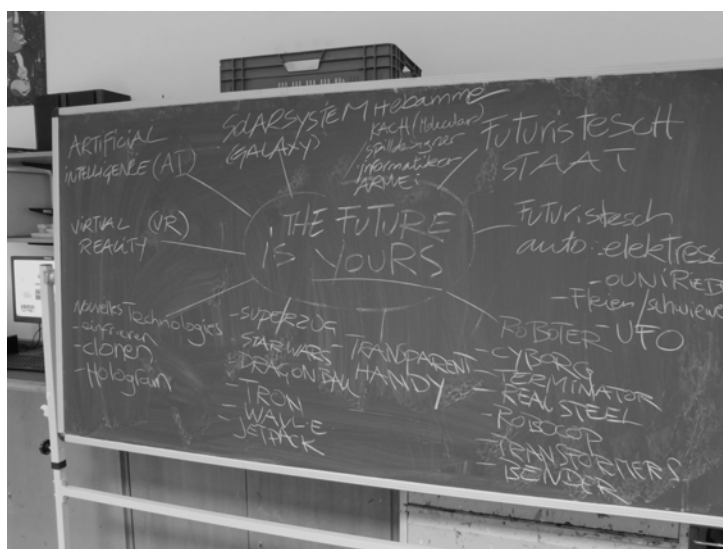 ARTIFICIAL
INTELLIGENCE (AI)
SOLARSYSTEM
(GALAXY)
Hebamme
KACH (Molecular)
Spilldesigner
informatiker
ARMEi
FUTURISTESCH
STAAT
VIRTUAL (VR)
REALITY
THE FUTURE
IS YOURS
FUTURISTESCH
auto: elektresch
- OUNI RIEDER
- Fléien/schwiewen
- UFO
Nouvelles Technologies
- einfrieren
- clonen
- Hologram
- SUPERZUG
STARWARS
DRAGONBALL
- TRON
- WALL-E
JETPACK
- TRANSPARENT
HANDY
ROBOTER
- CYBORG
- TERMINATOR
- REAL STEEL
- ROBOCOP
- TRANSFORMERS
- BENDER